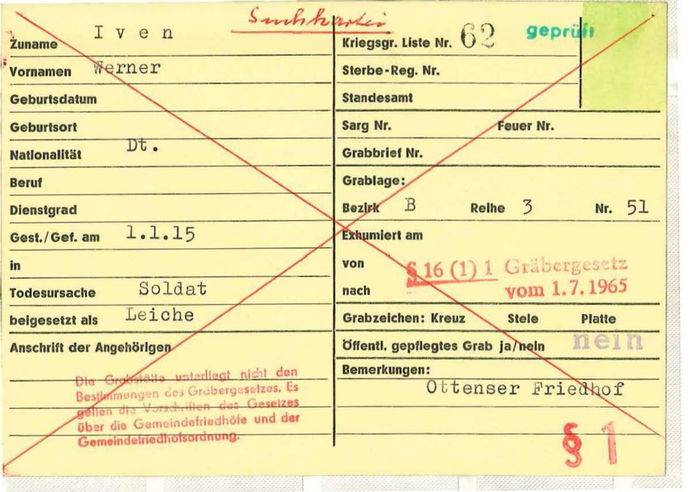 Suchkartei
Zuname Iven
Vornamen Werner
Geburtsdatum
Geburtsort
Nationalität Dt.
Beruf
Dienstgrad
Gest./Gef. am 1.1.15
in
Todesursache Soldat
beigesetzt als Leiche
Anschrift der Angehörigen
Die Grabstätte unterliegt nicht den
Bestimmungen des Gräbergesetzes. Es
gelten die Vorschriften des Gesetzes
über die Gemeindefriedhöfe und der
Gemeindefriedhofsordnung.
Kriegsgr. Liste Nr. 62 geprüft
Sterbe-Reg. Nr.
Standesamt
Sarg Nr. Feuer Nr.
Grabbrief Nr.
Grablage:
Bezirk B Reihe 3 Nr. 51
Exhumiert am
von § 16 (1) 1 Gräbergesetz
nach vom 1.7.1965
Grabzeichen: Kreuz Stele Platte
Öffentl. gepflegtes Grab ja/nein nein
Bemerkungen:
Ottenser Friedhof
§ 1